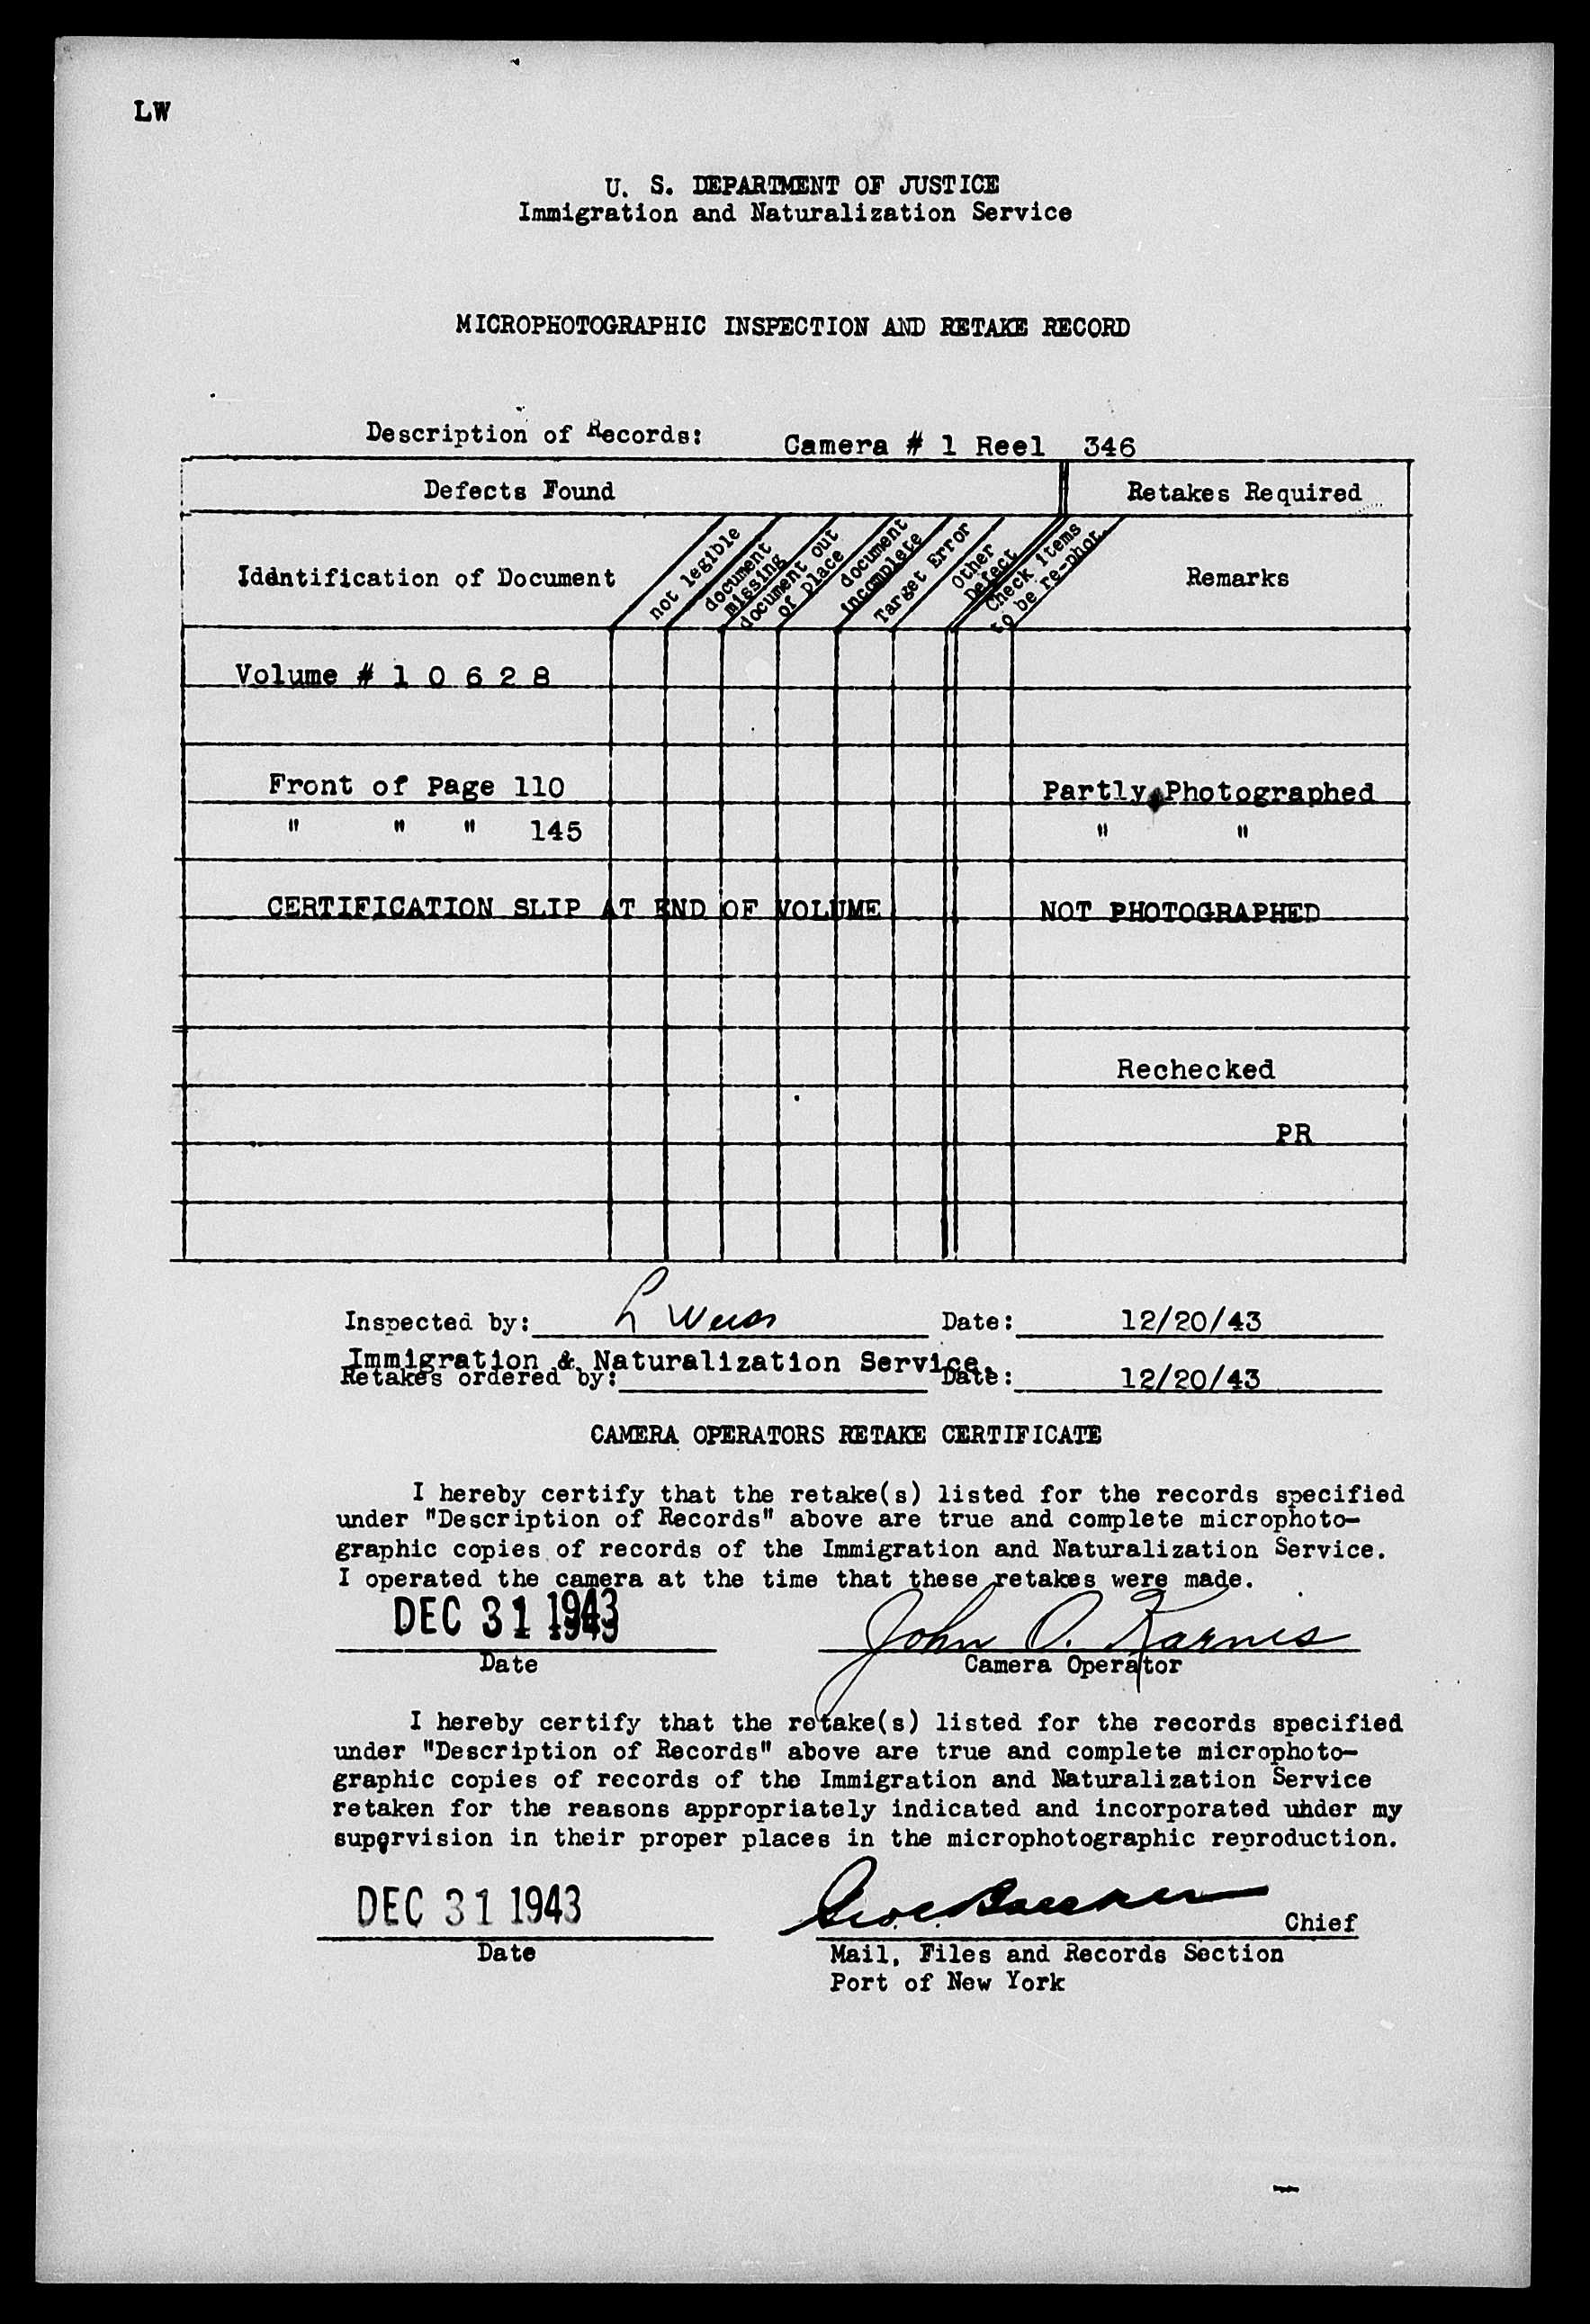 LW
U. S. DEPARTMENT OF JUSTICE
Immigration and Naturalization Service
MICROPHOTOGRAPHIC INSPECTION AND RETAKE RECORD
Description of Records: Camera # 1 Reel 346
Defects Found Retakes Required
Identification of Document
not legible
document
missing
document out
of place
document
incomplete
Target Error
Other
Defect
Check items
to be re-phot.
Remarks
Volume # 1 0 6 2 8
Front of Page 110 Partly Photographed
" " " 145 " "
CERTIFICATION SLIP AT END OF VOLUME NOT PHOTOGRAPHED
Rechecked
PR
Inspected by: L Weiss Date: 12/20/43
Immigration & Naturalization Service.
Retakes ordered by: Date: 12/20/43
CAMERA OPERATORS RETAKE CERTIFICATE
I hereby certify that the retake(s) listed for the records specified
under "Description of Records" above are true and complete microphoto-
graphic copies of records of the Immigration and Naturalization Service.
I operated the camera at the time that these retakes were made.
DEC 31 1943 John O. Karnis
Date Camera Operator
I hereby certify that the retake(s) listed for the records specified
under "Description of Records" above are true and complete microphoto-
graphic copies of records of the Immigration and Naturalization Service
retaken for the reasons appropriately indicated and incorporated uhder my
supervision in their proper places in the microphotographic reproduction.
DEC 31 1943 Chief
Date Mail, Files and Records Section
Port of New York